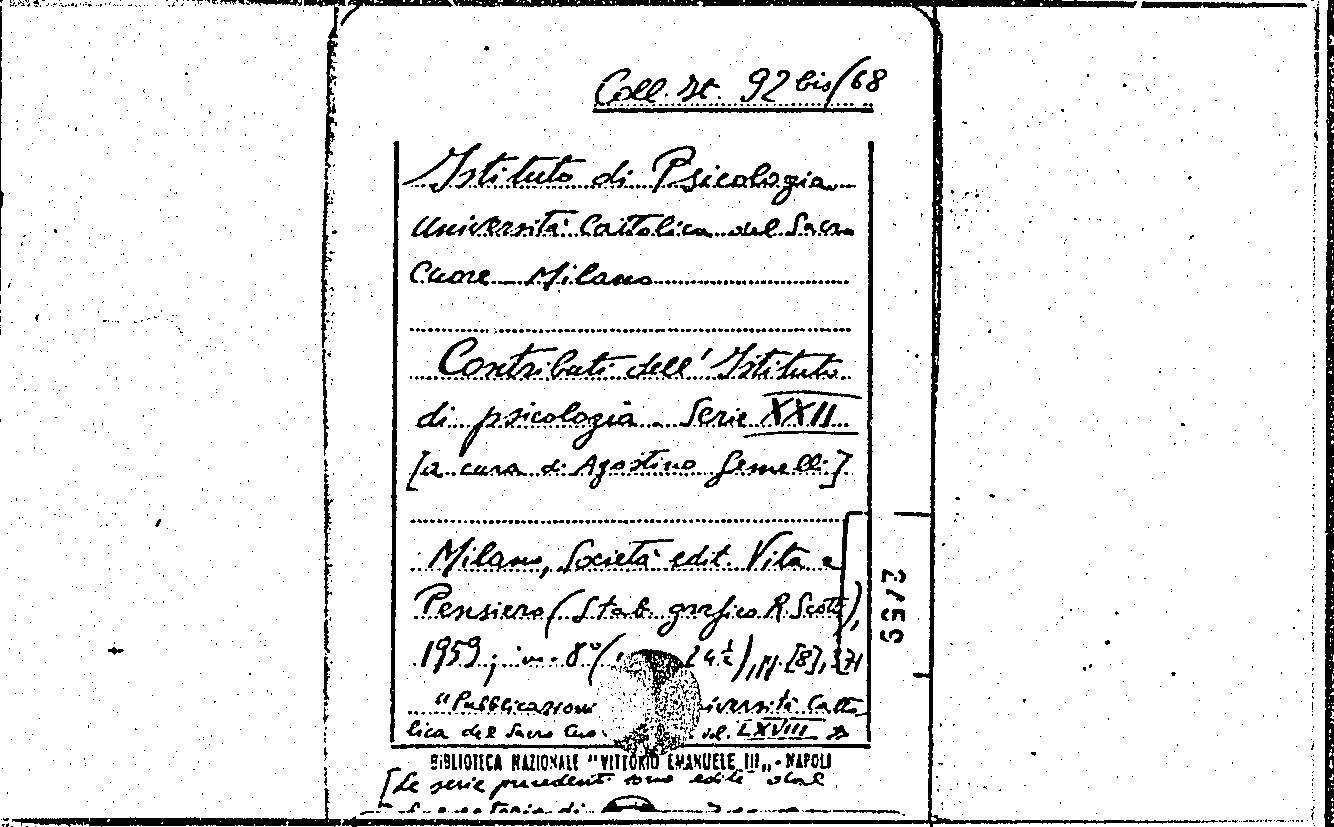 Coll. It. 92 bis/68
Istituto di Psicologia
Università Cattolica del Sacro
Cuore Milano
Contributi dell'Istituto
di psicologia. Serie XXII
[a cura di Agostino Gemelli]
Milano, Società edit. Vita e
Pensiero (Stab. grafico R. Scotti),
1959; in-8° ( 24½), pp. [8], 371
"Pubblicazioni iversità Catto
lica del Sacro Cuo. vol. LXVIII
BIBLIOTECA NAZIONALE "VITTORIO EMANUELE III„ - NAPOLI
[Le serie precedenti sono edite dal
di